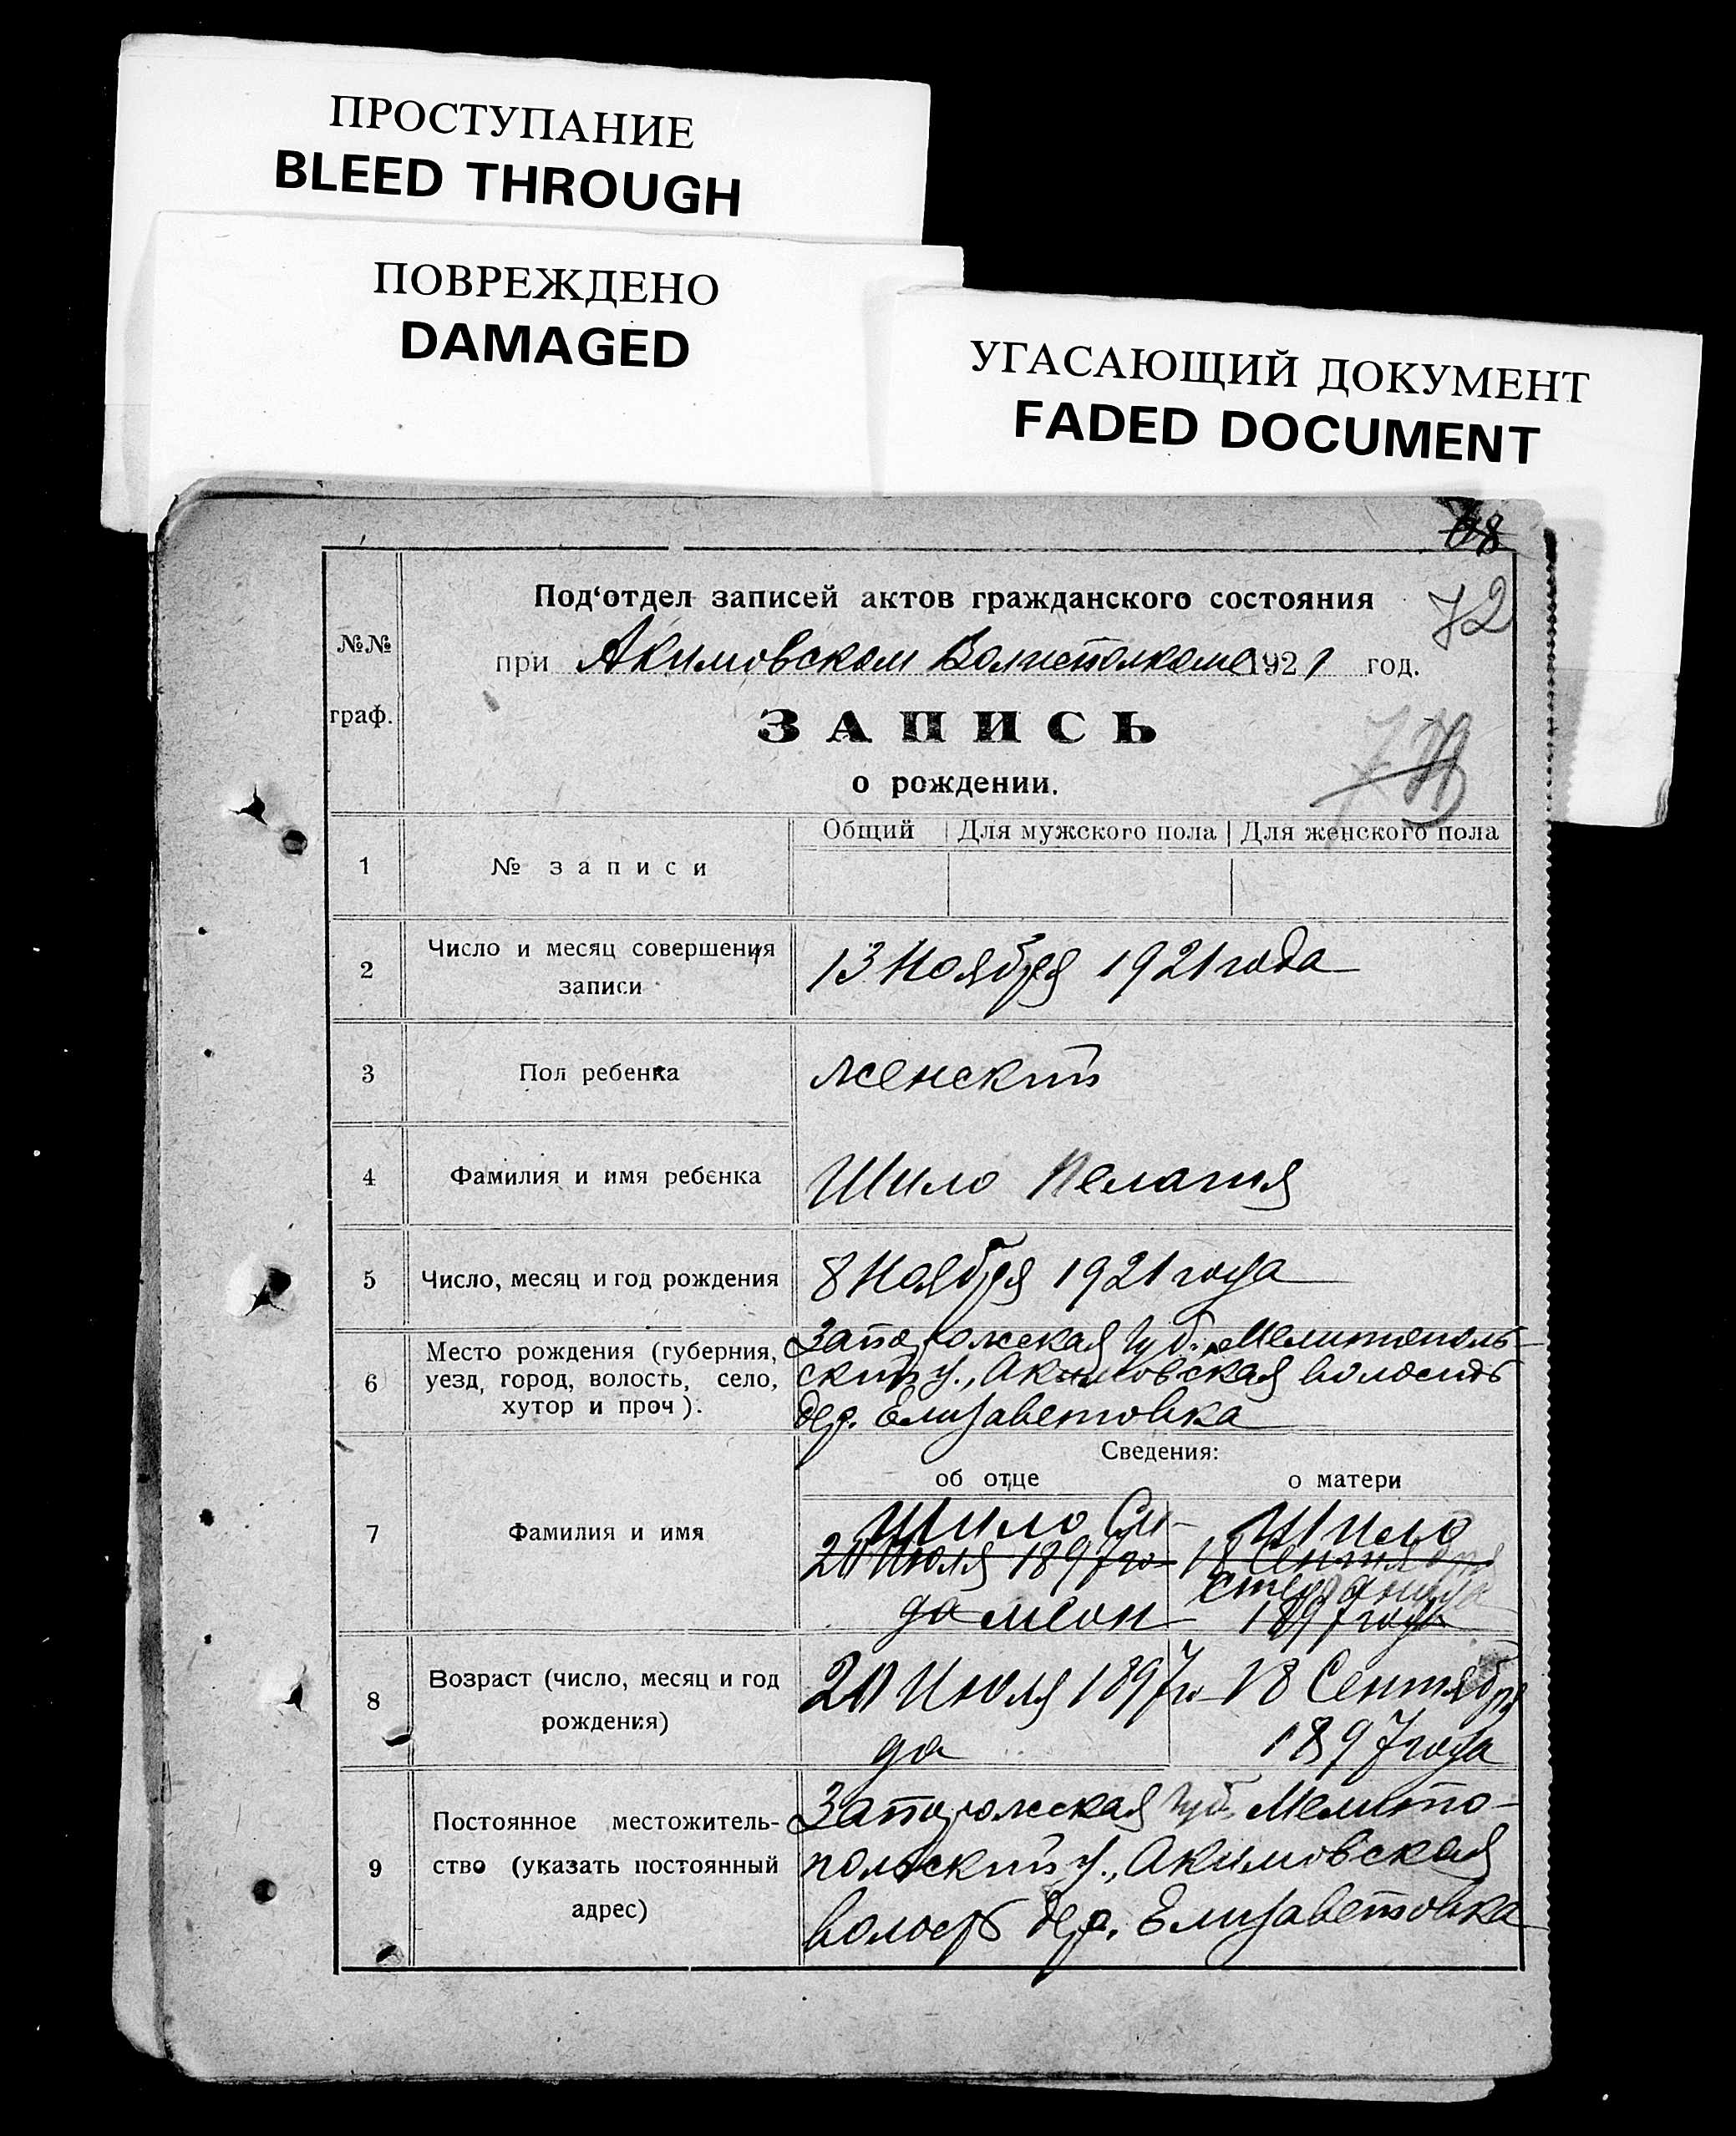 ПРОСТУПАНИЕ
BLEED THROUGH
ПОВРЕЖДЕНО
DAMAGED
УГАСАЮЩИЙ ДОКУМЕНТ
FADED DOCUMENT
68
72
№№
граф.
Под‘отдел записей актов гражданского состояния
при Акимовском Волисполкоме 1921 год.
ЗАПИСЬ
о рождении.
Общий Для мужского пола Для женского пола
1 № записи
2 Число и месяц совершения
записи
13 Ноября 1921 года
3 Пол ребенка женский
4 Фамилия и имя ребенка Шило Пелагия
5 Число, месяц и год рождения 8 Ноября 1921 года
6 Место рождения (губерния,
уезд, город, волость, село,
хутор и проч).
Запорожская Губ., Мелитополь-
ский у., Акимовская волость
дер. Елизаветовка
Сведения:
об отце о матери
7 Фамилия и имя
Шило Си- Шило
20 Июля 1897 го- 18 Сентября
да меон
1897 года
8 Возраст (число, месяц и год
рождения)
20 Июля 1897 го- 18 Сентября
да 1897 года
9 Постоянное местожитель-
ство (указать постоянный
адрес)
Запорожская Губ. Мелито-
польский у., Акимовская
волость дер. Елизаветовка